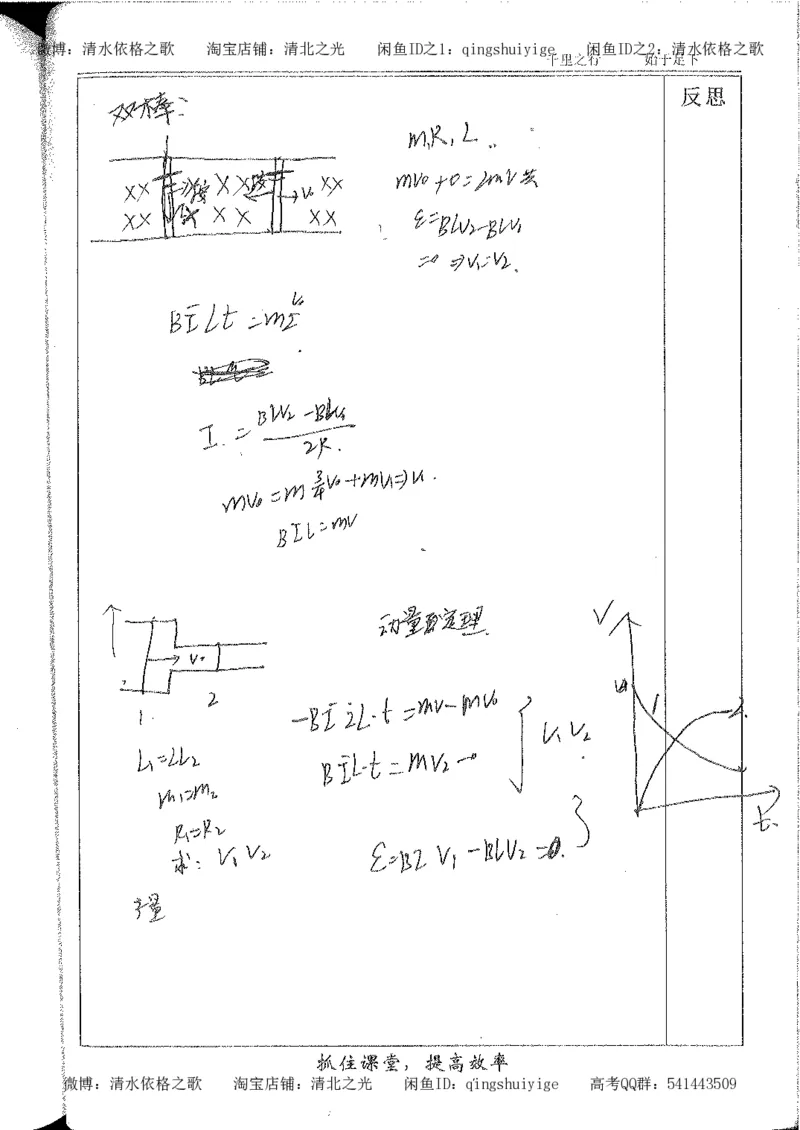 微博：清水依格之歌 淘宝店铺：清北之光 闲鱼ID之1：qingshuiyige 闲鱼ID之2：清水依格之歌
千里之行 始于足下
反思
双棒：
m,R,L
×× ×× ××
V₀
×× ×× ××
mv₀+0=2mv共
ε=BLV₂-BLV₁
=0 ⇒V₁=V₂.
BILt=m
I=(BLV₂-BLV₁)/2R.
mv₀=m¾v₀+mv₁⇒v₁.
BIL=mv
动量定理
V₀
1. 2
-BI2L·t=mv-mv₀
BIL·t=mv₂-0
V₁V₂
L₁=2L₂
m₁=m₂
R₁=R₂
求：V₁V₂
ε=B2LV₁-BLV₂=0.
V
1
2
t.
抓住课堂，提高效率
微博：清水依格之歌 淘宝店铺：清北之光 闲鱼ID：qingshuiyige 高考QQ群：541443509